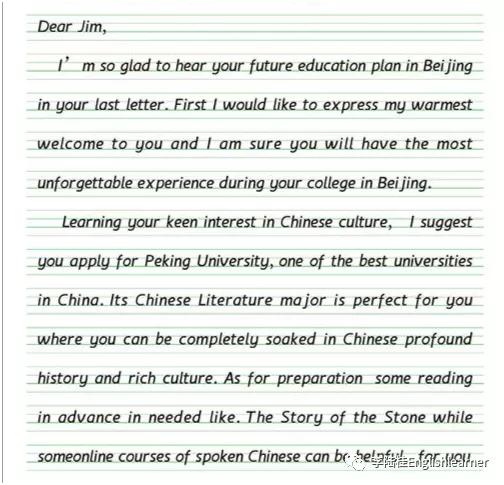 Dear Jim,
I'm so glad to hear your future education plan in Beijing
in your last letter. First I would like to express my warmest
welcome to you and I am sure you will have the most
unforgettable experience during your college in Beijing.
Learning your keen interest in Chinese culture, I suggest
you apply for Peking University, one of the best universities
in China. Its Chinese Literature major is perfect for you
where you can be completely soaked in Chinese profound
history and rich culture. As for preparation some reading
in advance in needed like. The Story of the Stone while
someonline courses of spoken Chinese can be helpful for you
Englishlearner